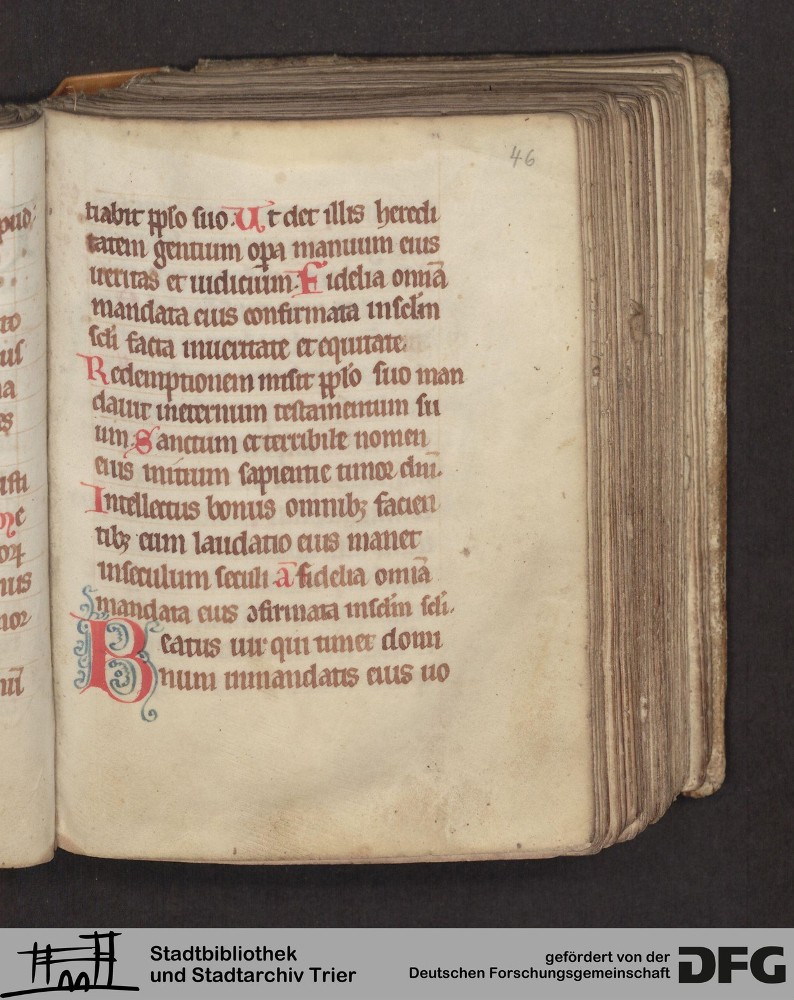 46
tiabit pplo suo. Ut det illis heredi
tatem gentium opa manuum eius
ueritas et iudicium. Fidelia omīa
mandata eius confirmata insclm
scli facta inueritate et equitate.
Redemptionem misit pplo suo man
dauit ineternum testamentum su
um. Sanctum et terribile nomen
eius initium sapientie timor dni.
Intellectus bonus omnibꝫ facien
tibꝫ eum laudatio eius manet
inseculum seculi a fidelia omīa
mandata eius ꝯfirmata insclm scli.
Beatus uir qui timet domi
num inmandatis eius uo
Stadtbibliothek
und Stadtarchiv Trier
gefördert von der
Deutschen Forschungsgemeinschaft
DFG